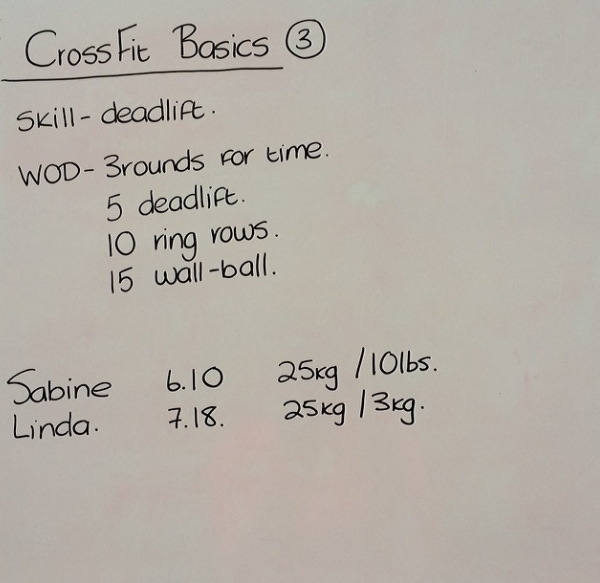 CrossFit Basics 3
Skill - deadlift.
WOD - 3rounds for time.
5 deadlift.
10 ring rows.
15 wall-ball.
Sabine 6.10 25kg / 10lbs.
Linda. 7.18. 25kg / 3kg.